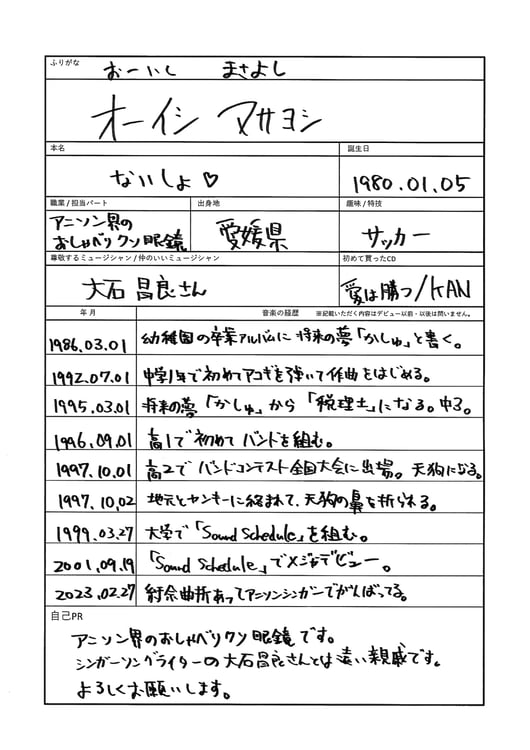 ふりがな
おーいし まさよし
オーイシ マサヨシ
本名
誕生日
ないしょ♡
1980.01.05
職業/担当パート
出身地
趣味/特技
アニソン界の
おしゃべりクソ眼鏡
愛媛県
サッカー
尊敬するミュージシャン/仲のいいミュージシャン
初めて買ったCD
大石昌良さん
愛は勝つ/KAN
年月
音楽の経歴 ※記載いただく内容はデビュー以前・以後は問いません。
1986.03.01 幼稚園の卒業アルバムに将来の夢「かしゅ」と書く。
1992.07.01 中学1年で初めてアコギを弾いて作曲をはじめる。
1995.03.01 将来の夢「かしゅ」から「税理士」になる。中3。
1996.09.01 高1で初めてバンドを組む。
1997.10.01 高2でバンドコンテスト全国大会に出場。天狗になる。
1997.10.02 地元とヤンキーに絡まれて、天狗の鼻を折られる。
1999.03.27 大学で「Sound Schedule」を組む。
2001.09.19 「Sound Schedule」でメジャデビュー。
2023.02.27 紆余曲折あってアニソンシンガーでがんばってる。
自己PR
アニソン界のおしゃべりクソ眼鏡です。
シンガーソングライターの大石昌良さんとは遠い親戚です。
よろしくお願いします。